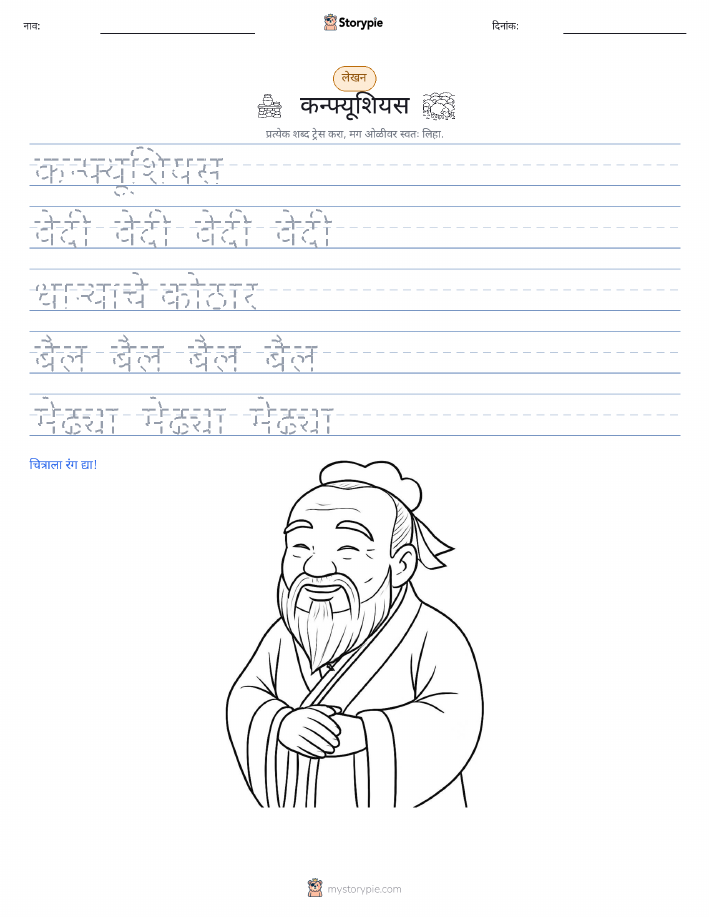 नाव:
Storypie
दिनांक:
लेखन
कन्फ्यूशियस
प्रत्येक शब्द ट्रेस करा, मग ओळीवर स्वतः लिहा.
कन्फ्यूशियस
वेदी वेदी वेदी वेदी
धान्याचे कोठार
बैल बैल बैल बैल
मेंढ्या मेंढ्या मेंढ्या
चित्राला रंग द्या!
mystorypie.com